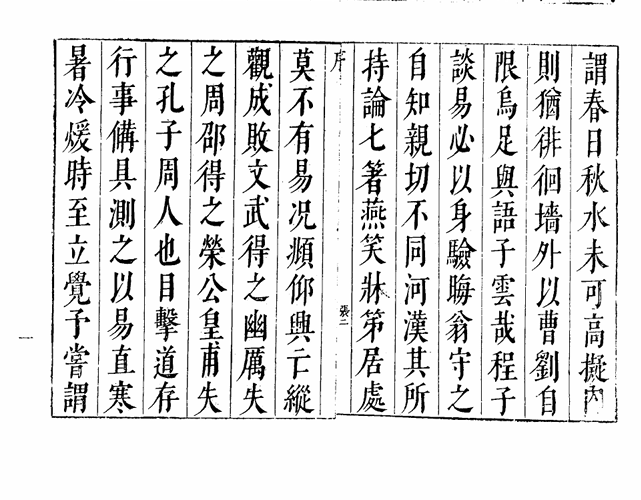 謂春日秋水未可高擬內
則猶徘徊墻外以曹劉自
限烏足與語子雲哉程子
談易必以身驗晦翁守之
自知親切不同河漢其所
持論七著燕笑牀笫居處
序
張二
莫不有易況頫仰興亡縱
觀成敗文武得之幽厲失
之周邵得之榮公皇甫失
之孔子周人也目擊道存
行事備具測之以易直寒
暑冷煖時至立覺予嘗謂